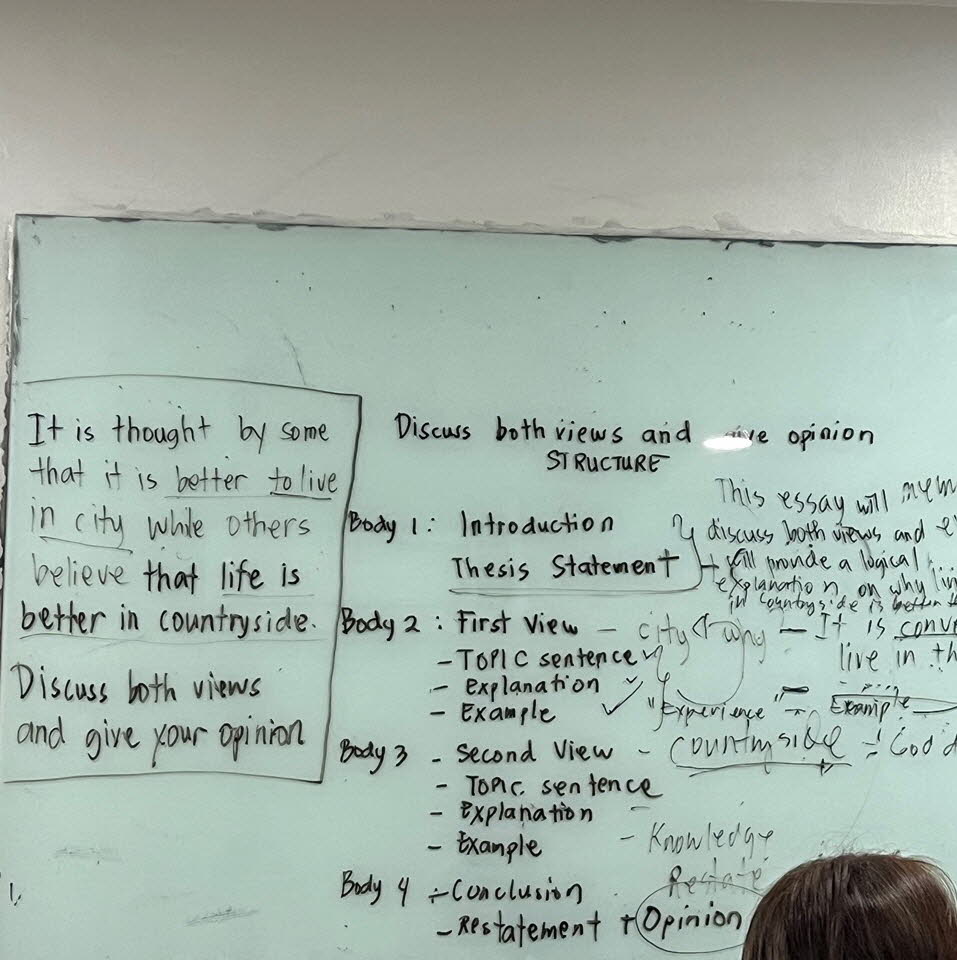 It is thought by some
that it is better to live
in city while others
believe that life is
better in countryside.
Discuss both views
and give your opinion
Discuss both views and give opinion
STRUCTURE
Body 1: Introduction
Thesis Statement
This essay will
discuss both views and
will provide a logical
explanation on why
in countryside is better
Body 2: First View - city why - It is
live in
- TOPIC sentence
- Explanation
- Example "Experience" - Example
Body 3 - Second View - countryside -
- Topic sentence
- Explanation
- Example - Knowledge
Restate
Body 4 - Conclusion
- Restatement + Opinion
1.